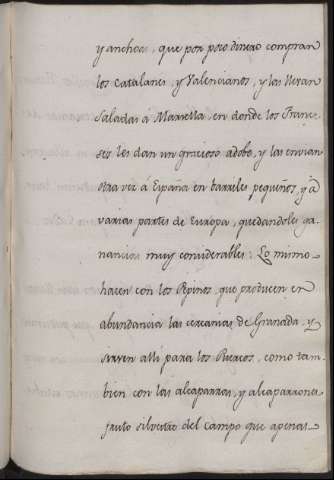 y anchoas, que por poco dinero compran
los Catalanes, y Valencianos, y las llevan
Saladas á Marsella, en donde los France-
ses les dan un gracioso adobo, y las envian
otra vez á España en barriles pequeños, y á
varias partes de Europa, quedandoles ga-
nancias muy considerables. Lo mismo
hacen con los Pepinos, que producen en
abundancia las cercanias de Granada, y
sirven alli para los Puercos, como tam-
bien con las alcaparras, y alcaparrones
fruto silvestre del campo que apenas